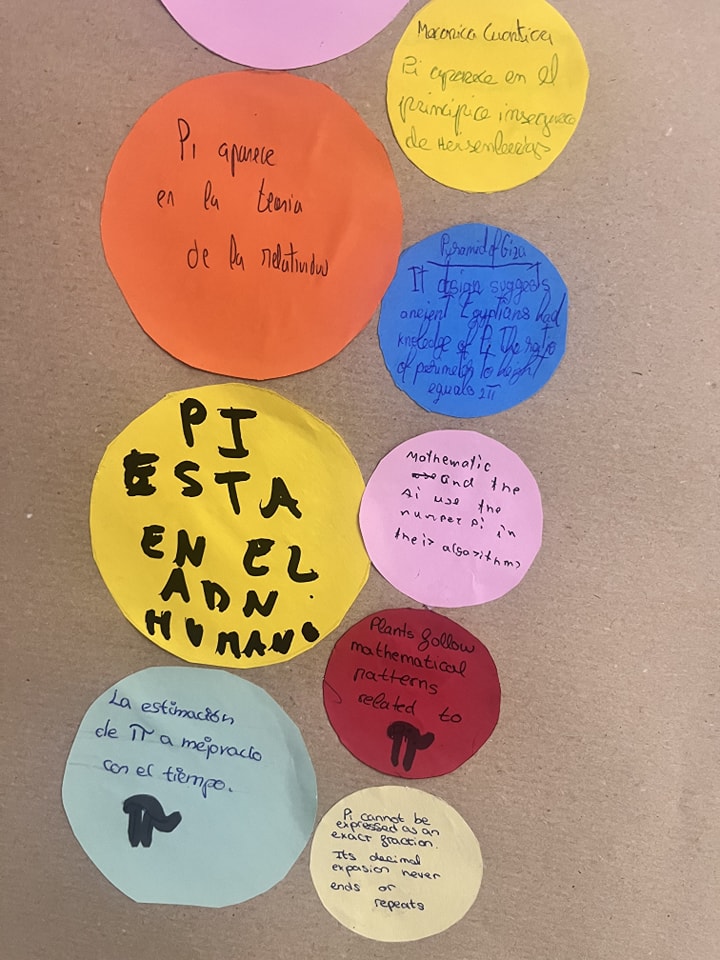 Mecanica Cuantica
Pi aparece en el
principio inseguro
de Heisenberg
Pi aparece
en la teoria
de la relatividad
Pyramid of Giza
It design suggests
ancient Egyptians had
knoledge of Pi The ratio
of perimeter to height
equals 2π
PI
ESTA
EN EL
ADN
HUMANO
Mathematic
and the
ai use the
number pi in
their algorithms
Plants follow
mathematical
patterns
related to
π
La estimación
de π a mejorado
con el tiempo.
π
Pi cannot be
expressed as an
exact fraction.
Its decimal
expasion never
ends or
repeats